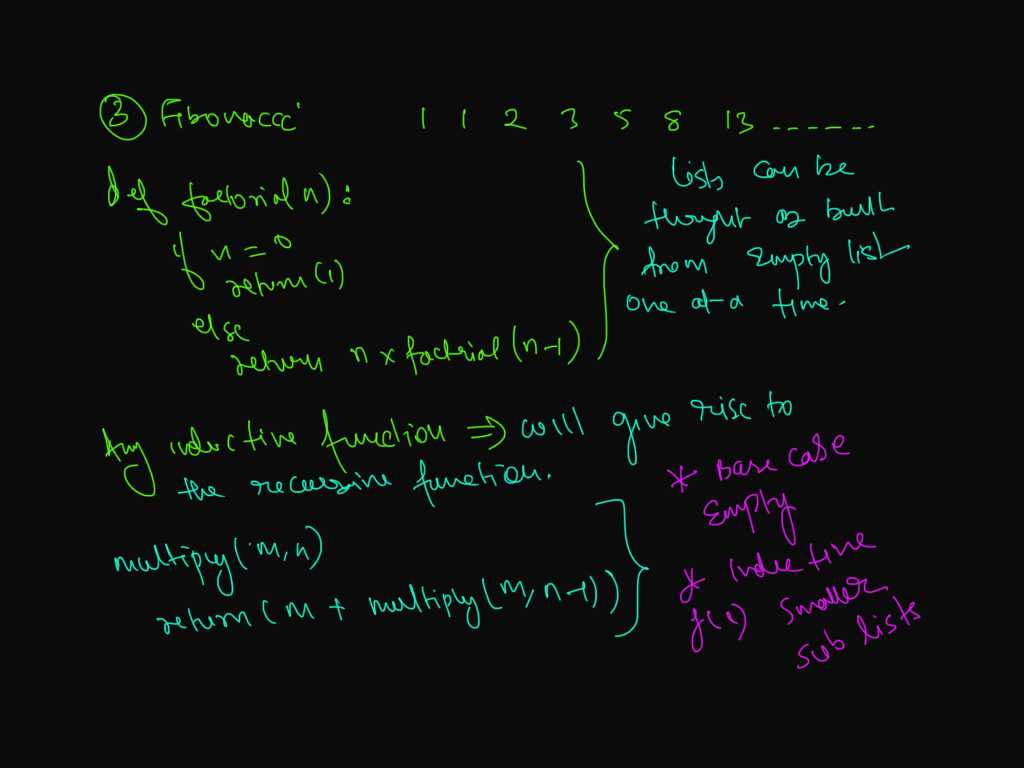 ③ Fibonacci 1 1 2 3 5 8 13 .......
def factorial n):
if n = 0
return (1)
else
return n x factorial (n-1)
lists can be
thought as built
from Empty list
one at-a time.
Any inductive function ⇒ will give rise to
the recursive function.
multiply(m,n)
return (m + multiply(m, n-1))
* Base case
Empty
* Inductive
f(l) smaller
sub lists